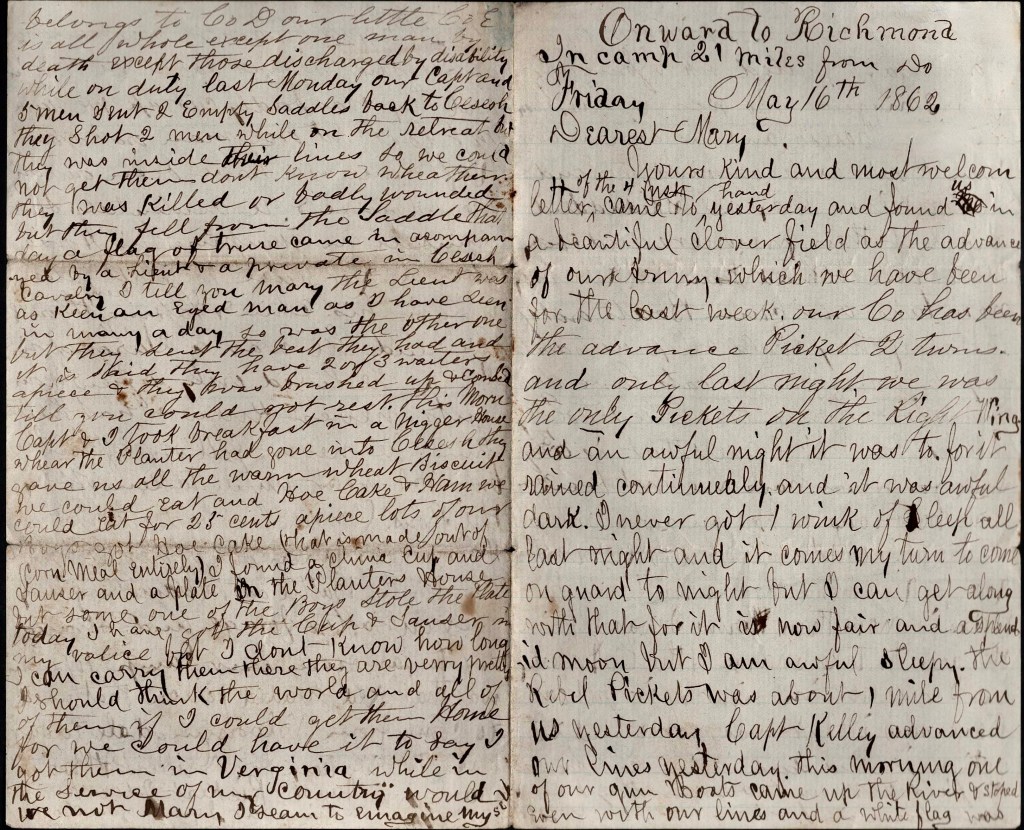 Onward to Richmond
In camp 21 miles from Do
Friday May 16th 1862
Dearest Mary
Yours kind and most welcom
of the 4 inst hand
letter, came to, yesterday and found us in
a beautiful clover field as the advance
of our Army. which we have been
for the last week. our Co has been
the advance Picket 2 turns.
and only last night we was
the only Pickets on the Right Wing
and an awful night it was to. for it
rained continuebly. and it was awful
dark. I never got 1 wink of Sleep all
last night and it comes my turn to come
on guard to night but I can get along
with that for it is now fair and a splend
id moon but I am awful sleepy. the
Rebel Pickets was about 1 mile from
us yesterday Capt Kelley advanced
our lines yesterday. this morning one
of our gun Boats came up the River & stoped
even with our lines and a white flag was
belongs to Co D our little Co E
is all whole except one man by
death except those discharged by disability
while on duty last Monday our Capt and
5 men Sent 2 Empty Saddles back to Cecesh
they Shot 2 men while on the retreat but
they was inside their lines so we could
not get them dont know wheather
they was Killed or badly wounded
but they fell from the Saddle that
day a flag of truce came in acompan
ned by a Lieut & a private in Cecesh
Cavalry I tell you Mary the Lieut was
as Keen an Eyed man as I have Seen
in many a day so was the other one
but they sent the best they had and
it is said they have 2 or 3 waiters
apiece & they was brushed up & Combed
till you could not rest. this Morn
Capt & I took breakfast in a Nigger House
whear the Planter had gone into Cecesh they
gave us all the warm wheat Biscuit
we could Eat and Hoe Cake & Ham we
could Eat for 25 cents apiece lots of our
Boys got Hoe Cake that is made out of
corn Meal Entirely I found a china Cup and
Sauser and a plate in the Planters House
but some one of the Boys Stole the Plate
today I have got the Cup & Sauser in
my valice but I dont know how long
I can carry them there they are verry pretty
I should think the world and all of
of them if I could get them Home
for we could have it to say I
got them in Verginia while in
the Service of my country would
we not Mary I seam to emagine my self